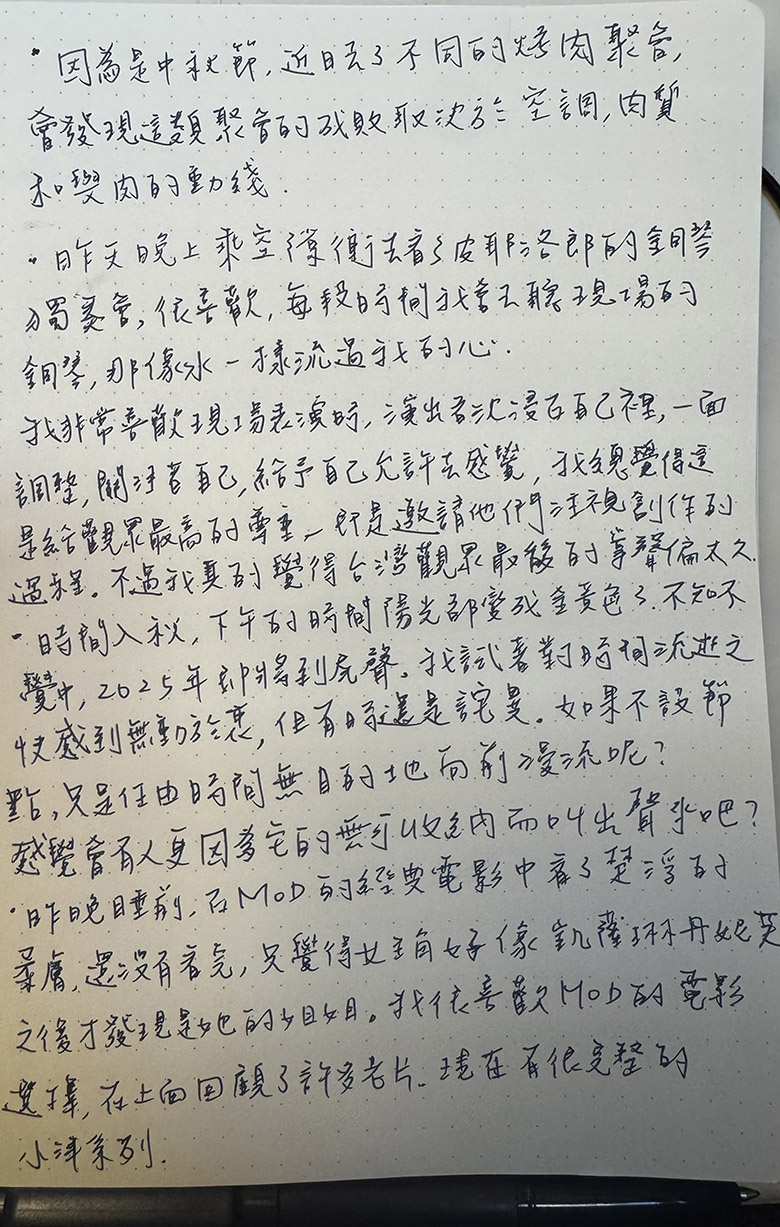 • 因為是中秋節,近日去了不同的烤肉聚會,
會發現這類聚會的成敗取決於空調,肉質
和與肉的動線.
• 昨天晚上乘空隙衝去看了皮耶洛郎的鋼琴
獨奏會,很喜歡,每段時間我會去聽現場的
鋼琴,那像水一樣流過我的心.
我非常喜歡現場表演時,演出者沈浸在自己裡,一面
調整,關注著自己,給予自己允許去感覺,我總覺得這
是給觀眾最高的尊重,即是邀請他們注視創作的
過程。不過我真的覺得台灣觀眾最後的掌聲偏太久.
• 時間入秋,下午的時間陽光都變成金黃色了.不知不
覺中,2025年即將到尾聲。我試著對時間流逝之
快感到無動於衷,但有時還是詫異。如果不設節
點,只是任由時間無目的地向前漫流呢?
感覺會有人更因為它的無可收納而叫出聲來吧?
• 昨晚睡前,在MOD的經典電影中看了楚浮的
柔膚,還沒有看完,只覺得女主角好像凱薩琳丹妮芙
之後才發現是她的姐姐。我很喜歡MOD的電影
選擇,在上面回顧了許多老片.現在有很完整的
小津系列.